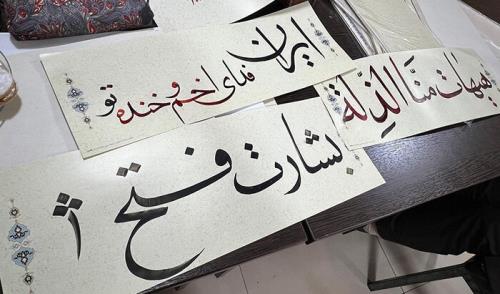 ایران
فدای اخم و خنده تو
هیهات منّا الذلة
بشارت فتح